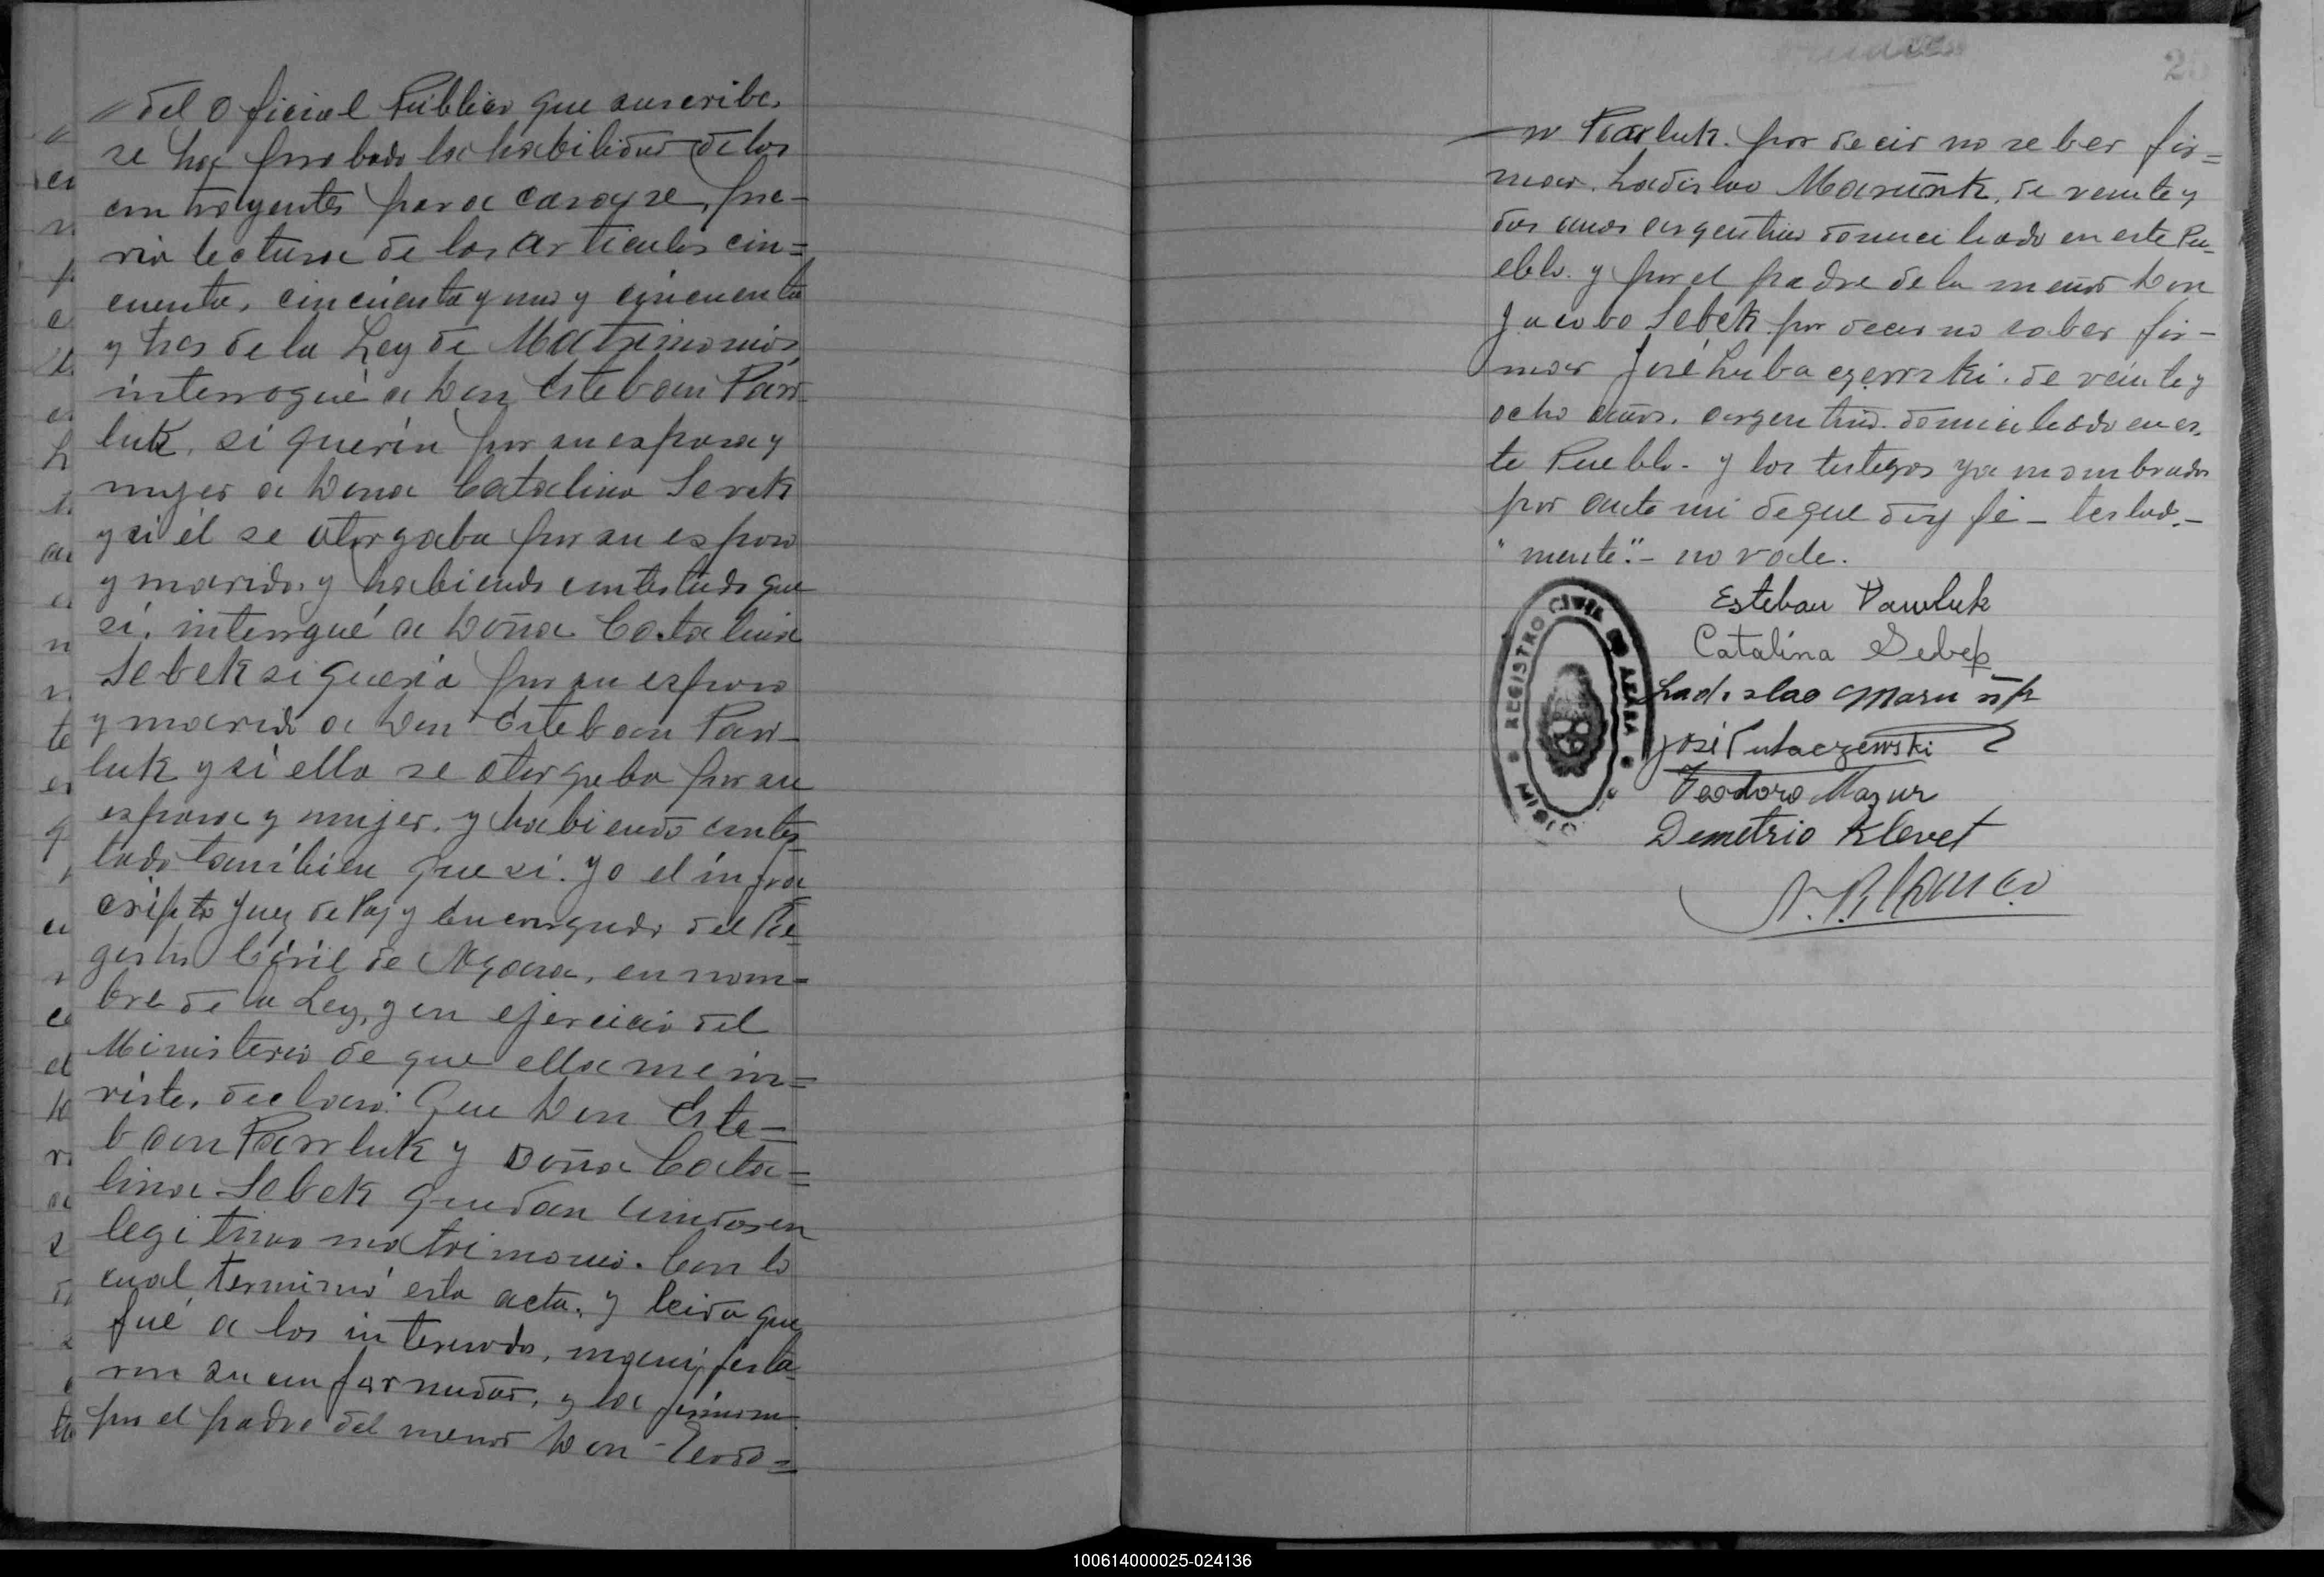 del Oficial Público que suscribe,
se ha probado la habilidad de los
contrayentes para casarse, pre-
via lectura de los articulos cin=
cuenta, cincuenta y uno y cincuenta
y tres de la Ley de Matrimonios,
interrogué a Don Esteban Paw-
luk, si queria por su esposa y
mujer a Dona Catalina Sevek
y si él se otorgaba por su esposo
y marido, y habiendo contestado que
sí, interrogué a Doña Catalina
Sebek si queria por su esposo
y marido a Don Esteban Paw-
luk y si ella se otorgaba por su
esposa y mujer, y habiendo contes-
tado tambien que si. Yo el infra
cripto Juez de Paz y Encargado del Re-
gistro Civil de Azara, en nom=
bre de la Ley, y en ejercicio del
Ministerio de que ella me in=
viste, declaro: Que Don Este=
ban Pawluk y Doña Cata=
lina Sebek quedan unidos en
legitimo matrimonio. Con lo
cual terminó esta acta, y leida que
fué a los interesados, manifesta-
ron su conformidad, y la firman
por el padre del menor Don Teodo=
ro Pawluk. por decir no saber fir=
mar, Ladislao Maruñk, de veinte y
dos anos argentino domiciliado en este Pu-
eblo. y por el padre de la menor Don
Jacobo Sebek por decir no saber fir-
mar José Lubaczewski. de veinte y
ocho años, argentino. domiciliado en es-
te Pueblo. y los testigos ya nombrados
por ante mi de que doy fé - testado.-
"mente".- no vale.
Esteban Pawluk
Catalina Sebek
Ladislao Maruñk
REGISTRO CIVIL DE AZARA
MISIO
José Lubaczewski
Teodoro Mazur
Demetrio Klevet